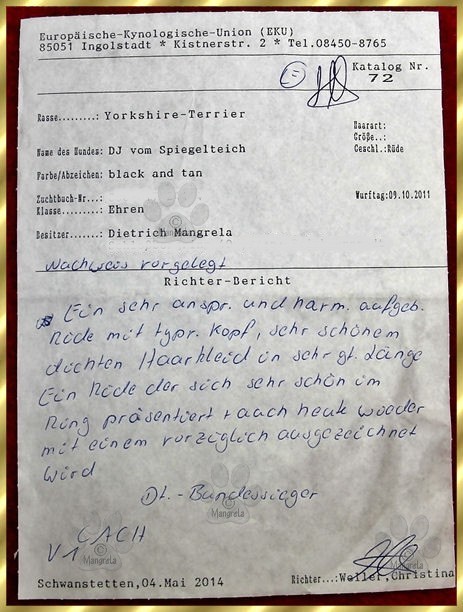 Europäische-Kynologische-Union (EKU)
85051 Ingolstadt * Kistnerstr. 2 * Tel.08450-8765
Katalog Nr.
72
Rasse........: Yorkshire-Terrier
Haarart:
Größe..:
Name des Hundes: DJ vom Spiegelteich
Geschl.:Rüde
Farbe/Abzeichen: black and tan
Zuchtbuch-Nr...:
Wurftag:09.10.2011
Klasse.........: Ehren
Besitzer.......: Dietrich Mangrela
Nachweis vorgelegt
Richter-Bericht
Ein sehr anspr. und harm. aufgeb.
Rüde mit typr. Kopf, sehr schönem
dichten Haarkleid in sehr gt. Länge
Ein Rüde der sich sehr schön im
Ring präsentiert + auch heute wieder
mit einem vorzüglich ausgezeichnet
wird
Dt.-Bundessieger
CACH
V1
Mangrela
Mangrela
Schwanstetten,04.Mai 2014
Richter...:Weller,Christina